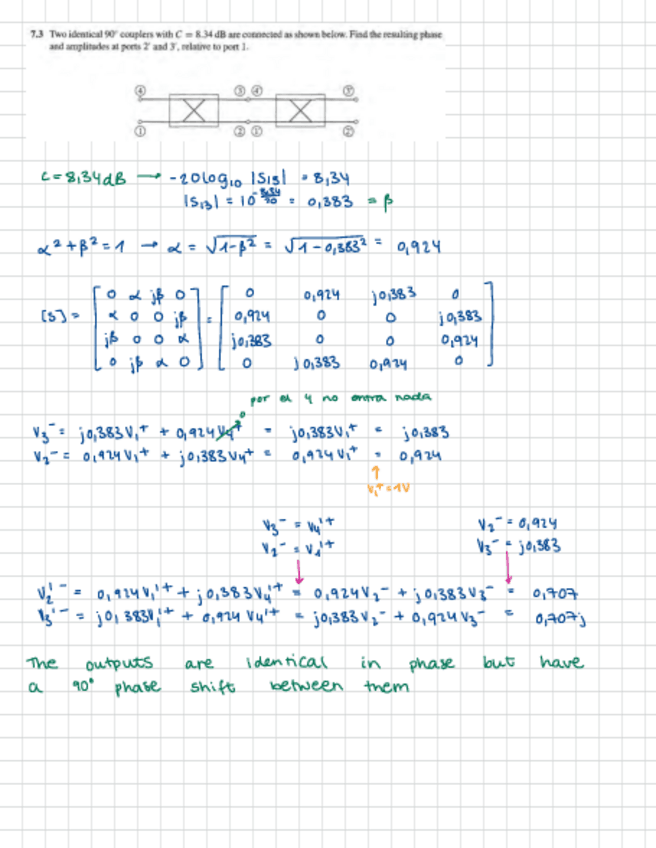 7.3 Two identical 90° couplers with C = 8.34 dB are connected as shown below. Find the resulting phase
and amplitudes at ports 2' and 3', relative to port 1.
④ ③ ④' ③'
① ② ①' ②'
C = 8,34dB → -20log₁₀ |S₁₃| = 8,34
|S₁₃| = 10^(-8,34/20) = 0,383 = β
α² + β² = 1 → α = √(1-β²) = √(1-0,383²) = 0,924
[S] = [0 α jβ 0] = [0 0,924 j0,383 0]
[α 0 0 jβ] [0,924 0 0 j0,383]
[jβ 0 0 α] [j0,383 0 0 0,924]
[0 jβ α 0] [0 j0,383 0,924 0]
por el 4 no entra nada
V₃⁻ = j0,383V₁⁺ + 0,924V₄⁺ 0 = j0,383V₁⁺ = j0,383
V₂⁻ = 0,924V₁⁺ + j0,383V₄⁺ = 0,924V₁⁺ = 0,924
↑
V₁⁺ = 1V
V₃⁻ = V₄'⁺ V₂⁻ = 0,924
V₂⁻ = V₁'⁺ V₃⁻ = j0,383
V₂'⁻ = 0,924V₁'⁺ + j0,383V₄'⁺ = 0,924V₂⁻ + j0,383V₃⁻ = 0,707
V₃'⁻ = j0,383V₁'⁺ + 0,924V₄'⁺ = j0,383V₂⁻ + 0,924V₃⁻ = 0,707j
The outputs are identical in phase but have
a 90° phase shift between them